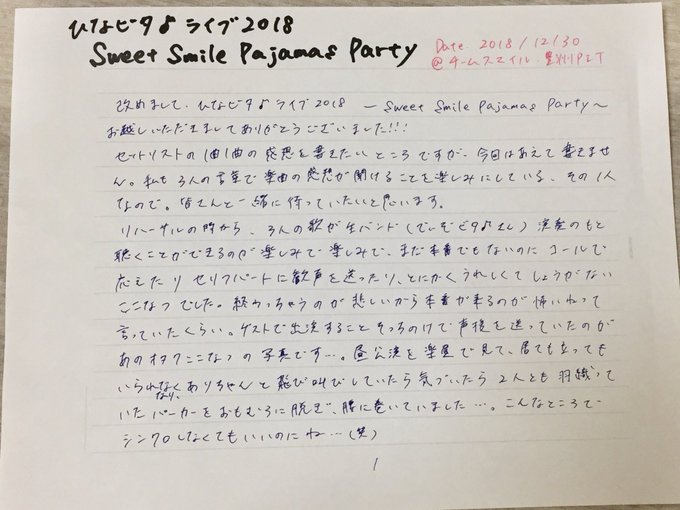 ひなビタ♪ライブ2018
Sweet Smile Pajamas Party
Date. 2018/12/30
@チームスマイル・豊洲PIT
改めまして、ひなビタ♪ライブ2018 ーSweet Smile Pajamas Party〜
お越しいただきましてありがとうございました!!!
セットリストの1曲1曲の感想を書きたいところですが、今回はあえて書きませ
ん。私も3人の言葉で楽曲の感想が聞けることを楽しみにしている、その1人
なので。皆さんと一緒に待っていたいと思います。
リハーサルの時から、3人の歌が生バンド(でぃすビタ♪さん)演奏のもと
聴くことができるのが楽しみで楽しみで、まだ本番でもないのにコールで
応えたりセリフパートに歓声を送ったり、とにかくうれしくてしょうがない
ここなつでした。終わっちゃうのが悲しいから本番が来るのが怖いねって
言っていたくらい。ゲストで出演することそっちのけで声援を送っていたのが
あのオタクここなつの写真です…。昼公演を楽屋で見て、居ても立っても
いられなくなり、ありちゃんと飛び叫びしていたら気づいたら2人とも羽織って
いたパーカーをおもむろに脱ぎ、腰に巻いていました…。こんなところで
シンクロしなくてもいいのにね…(笑)
1